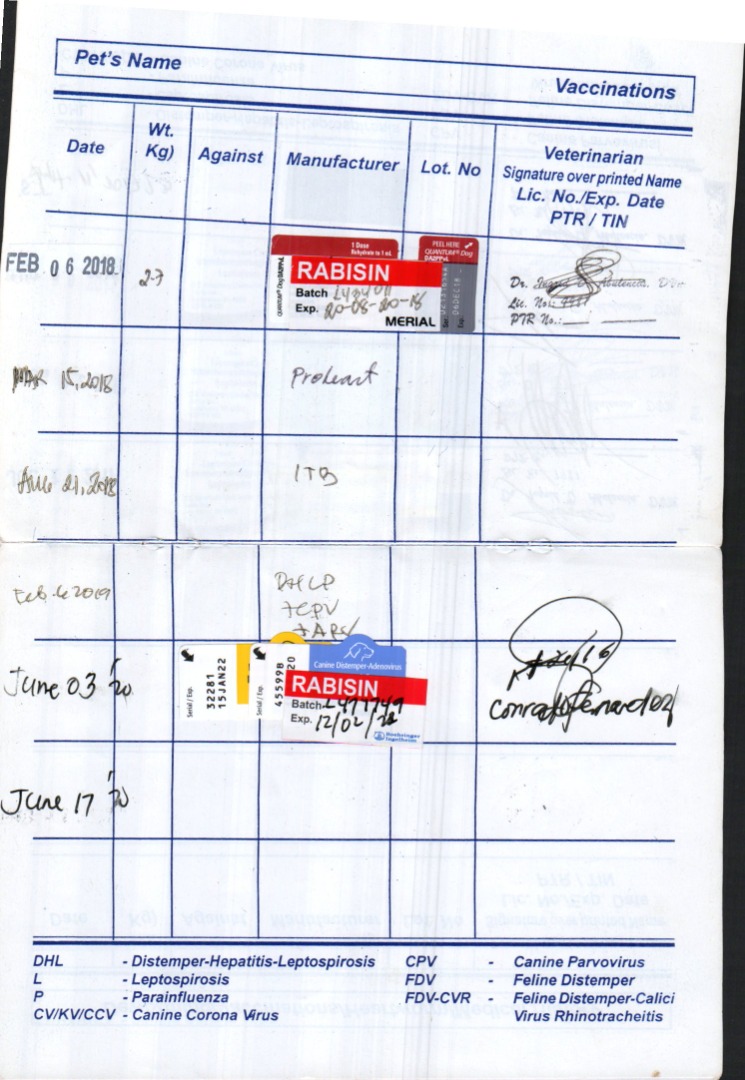 Pet's Name
Vaccinations
Date
Wt.
Kg)
Against
Manufacturer
Lot. No
Veterinarian
Signature over printed Name
Lic. No./Exp. Date
PTR / TIN
FEB. 06 2018
27
1 Dose
Rehydrate to 1 mL
PEEL HERE
QUANTUM® Dog
DA2PPvL
QUANTUM® Dog DA2PPvL
RABISIN
Batch
Exp. 20-08-20-18
MERIAL
Exp. 04DEC18
Dr.
Lic. No:
PTR No.:
MAR 15, 2018
Proheart
AUG 21, 2018
ITB
Feb 6 2019
DHLP
+CPV
+ARV
June 03 '20
Serial / Exp.
32281
15JAN22
Serial / Exp.
455998
20
Canine Distemper-Adenovirus
RABISIN
Batch L477749
Exp. 12/02/
Boehringer
Ingelheim
June 17 '20
DHL - Distemper-Hepatitis-Leptospirosis
L - Leptospirosis
P - Parainfluenza
CV/KV/CCV - Canine Corona Virus
CPV - Canine Parvovirus
FDV - Feline Distemper
FDV-CVR - Feline Distemper-Calici
Virus Rhinotracheitis